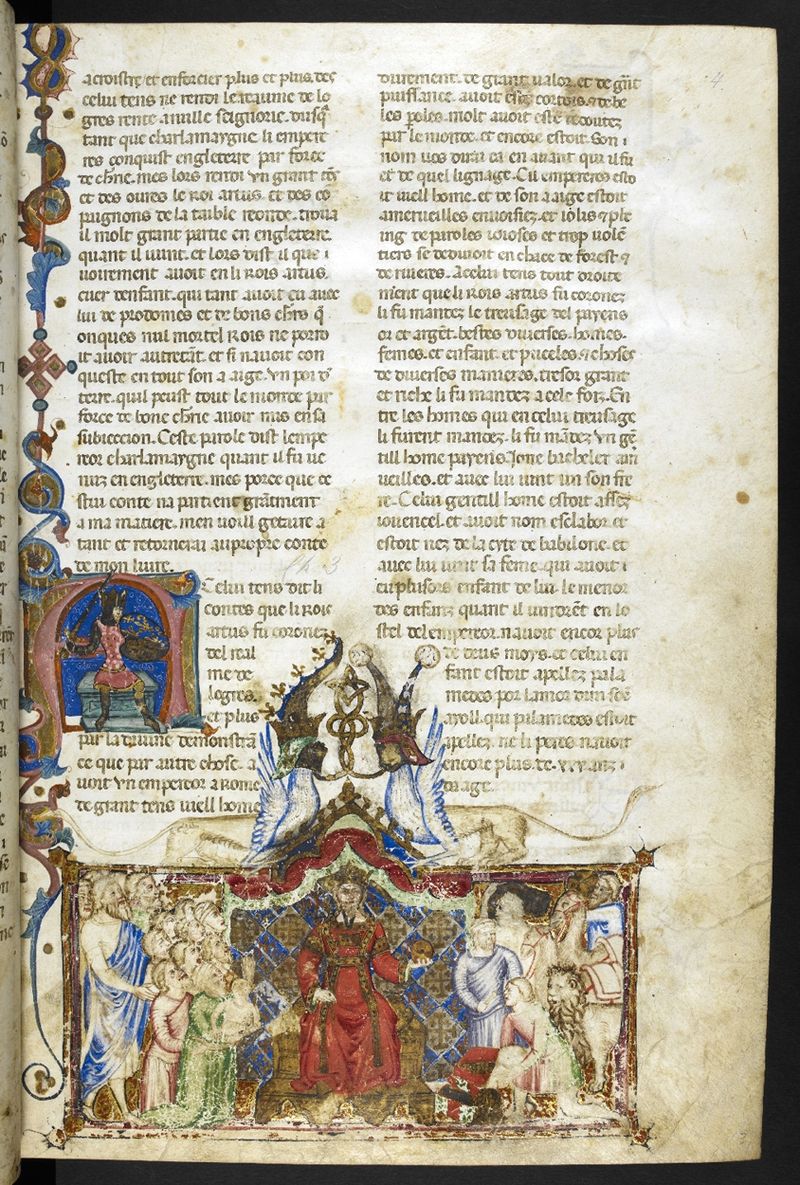 acroistre et enforcier plus et plus. des
celui tens ne rendi le reaume de lo
gres rente a nulle seignorie. dusq̄
tant que charlamaygne li emper
res conquist engleterre par force
de chr̄ie. mes lors rendi
et des oures le roi artus. et des cō
paignons de la table reonde. troua
il molt grant partie en engleterre.
quant il uint. et lors dist il que
uoirement auoit en li rois artus.
cuer denfant. qui tant auoit eu auec
lui de prodomes et de bons chrs̄ q̄
onques nul mortel rois ne porro
it auoir autretāt. et si nauoit con
queste en tout son aaige. vn poi de
terre. quil peust tout le monde par
force de bone chr̄ie auoir mis en sa
subiecion. Ceste parole dist lempe
reor charlamaygne quant il fu ue
nuz en engleterre. mes porce que ce
stui conte na partient grāment
a ma matiere. men uoill getaire a
tant et retornerai au propre conte
de mon liure.
A Celui tens dit li
contes que li rois
artus fu coronez
del real
me de
logres.
et plus
par la diuine demonstrā
ce que par autre chose. a
uoit vn empereor a rome
de grant tens uiell home
durement. de grant ualor. et de grāt
puissance. auoit estez cortois. de be
les poles. molt auoit este redoutez
par le monde. et encore estoit. Son
nom uos dirai ca en auant qui il fu
et de quel lignage. Cil empereres esto
it uiell home. et de son aaige estoit
amerueilles enuoisiez. et iolis ple
ing de paroles ioioses. et trop uolē
tiers se deduioit en chace de forest
de riuieres. A celui tens tout droite
mēt que li rois artus fu coronez
li fu mandez le treusage del payens
or et argēt. bestes diuerses. homes.
femes. et enfant. et puceles. choses
de diuerses manieres. tresor grant
et riche li fu mandez a cele foiz. En
tre les homes qui en celui treusage
li furent mandez. li fu mādez vn gē
till home payens. Jone bacheler am
ueilles. et auec lui uint un son fre
re. Celui gentill home estoit assez
iouencel. et auoit nom esclabor et
estoit nez de la cyte de babilone. et
auec lui uint sa feme. qui auoit
plusors enfant de lui. le menor
des enfanz quant il uindrēt en lo
stel del empereor. nauoit encor plus
de deus moys. et celui en
fant estoit apellez pala
medes por lamor dun
ayoll qui palamedes estoit
apellez. ne li peres nauoit
encore plus de .xxv. anz
daage.
4